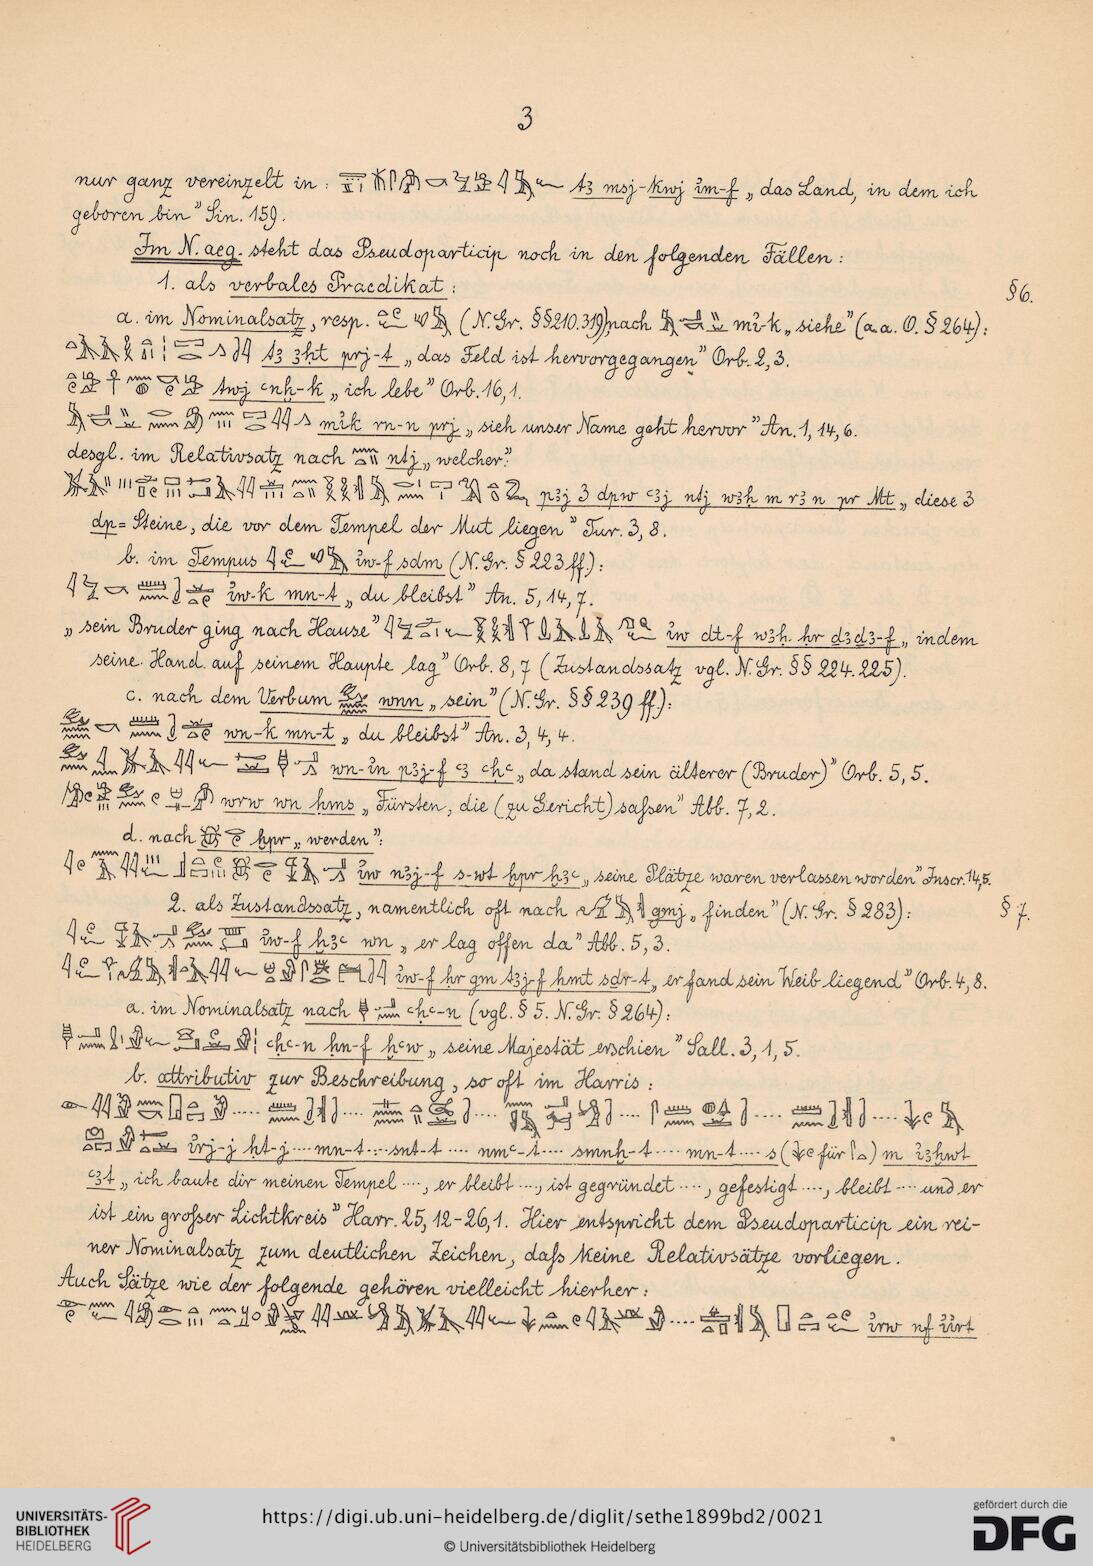 3
nur ganz vereinzelt in : tꜣ msj-kwj im-f „das Land, in dem ich
geboren bin” Sin. 159.
Im N. aeg. steht das Pseudoparticip noch in den folgenden Fällen :
1. als verbales Praedikat : § 6.
a. im Nominalsatz, resp. (N. Gr. §§ 210. 319) nach mỉ-k „siehe” (a. a. O. § 264) :
tꜣ ꜣḫt prj-t „das Feld ist hervorgegangen” Orb. 2, 3.
twj ꜥnḫ-k „ich lebe” Orb. 16, 1.
mỉk rn-n prj „sieh unser Name geht hervor” An. 1, 14, 6.
desgl. im Relativsatz nach ntj „welcher”:
pꜣj 3 dpw ꜥꜣj ntj wꜣḥ m rꜣ n pr Mt „diese 3
dp = Steine, die vor dem Tempel der Mut liegen” Tur. 3, 8.
b. im Tempus ỉw-f sdm (N. Gr. § 223 ff.) :
ỉw-k mn-t „du bleibst” An. 5, 14, 7.
„sein Bruder ging nach Hause” ỉw dt-f wꜣḥ ḥr dꜣdꜣ-f „indem
seine Hand auf seinem Haupte lag” Orb. 8, 7 (Zustandssatz vgl. N. Gr. §§ 224. 225).
c. nach dem Verbum wnn „sein” (N. Gr. §§ 239 ff.) :
wn-k mn-t „du bleibst” An. 3, 4, 4.
wn-ỉn pꜣj-f ꜥꜣ ꜥḥꜥ „da stand sein älterer (Bruder)” Orb. 5, 5.
wrw wn ḥms „Fürsten, die (zu Gericht) saſsen” Abb. 7, 2.
d. nach ḫpr „werden”:
ỉw nꜣj-f s-wt ḫpr ḫꜣꜥ „seine Plätze waren verlassen worden” Inscr. 14, 5.
2. als Zustandssatz, namentlich oft nach gmj „finden” (N. Gr. § 283) : § 7.
ỉw-f ḫꜣꜥ wn „er lag offen da” Abb. 5, 3.
ỉw-f ḥr gm tꜣj-f ḥmt sdr-t „er fand sein Weib liegend” Orb. 4, 8.
a. im Nominalsatz nach ꜥḥꜥ-n (vgl. § 5. N. Gr. § 264) :
ꜥḥꜥ-n ḥn-f ḫꜥw „seine Majestät erschien” Sall. 3, 1, 5.
b. attributiv zur Beschreibung, so oft im Harris :
ỉrj-j ḥt-j .... mn-t .... snt-t .... nmꜥ-t .... smnḫ-t .... mn-t .... s ( für ) m ỉꜣḫwt
ꜥꜣt „ich baute dir meinen Tempel ...., er bleibt ...., ist gegründet ...., gefestigt ...., bleibt .... und er
ist ein groſser Lichtkreis” Harr. 25, 12-26, 1. Hier entspricht dem Pseudoparticip ein rei-
ner Nominalsatz zum deutlichen Zeichen, daſs keine Relativsätze vorliegen.
Auch Sätze wie der folgende gehören vielleicht hierher :
ỉrw nf ỉỉrt
UNIVERSITÄTS-
BIBLIOTHEK
HEIDELBERG
https://digi.ub.uni-heidelberg.de/diglit/sethe1899bd2/0021
© Universitätsbibliothek Heidelberg
gefördert durch die
DFG